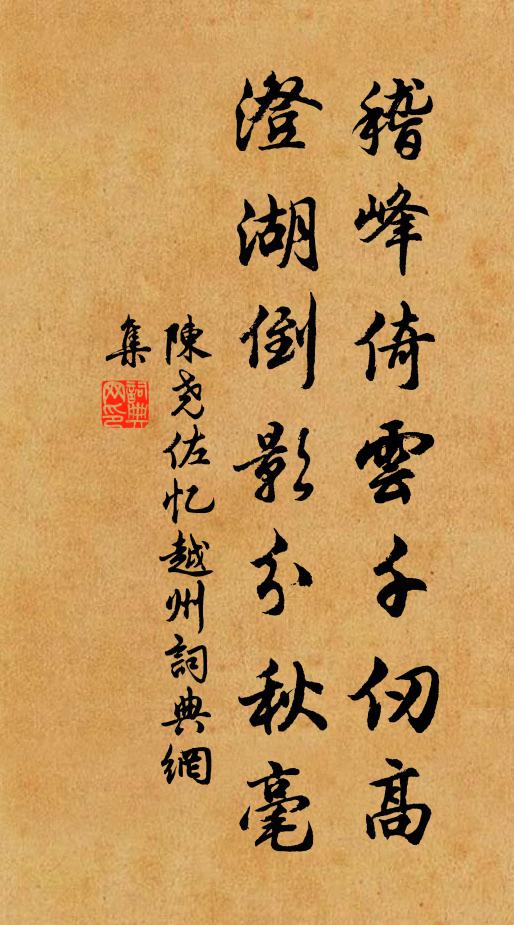 稽峰倚雲千仞高
澄湖倒影分秋毫
陳尧佐忆越州詞典網
集
詞典
网印